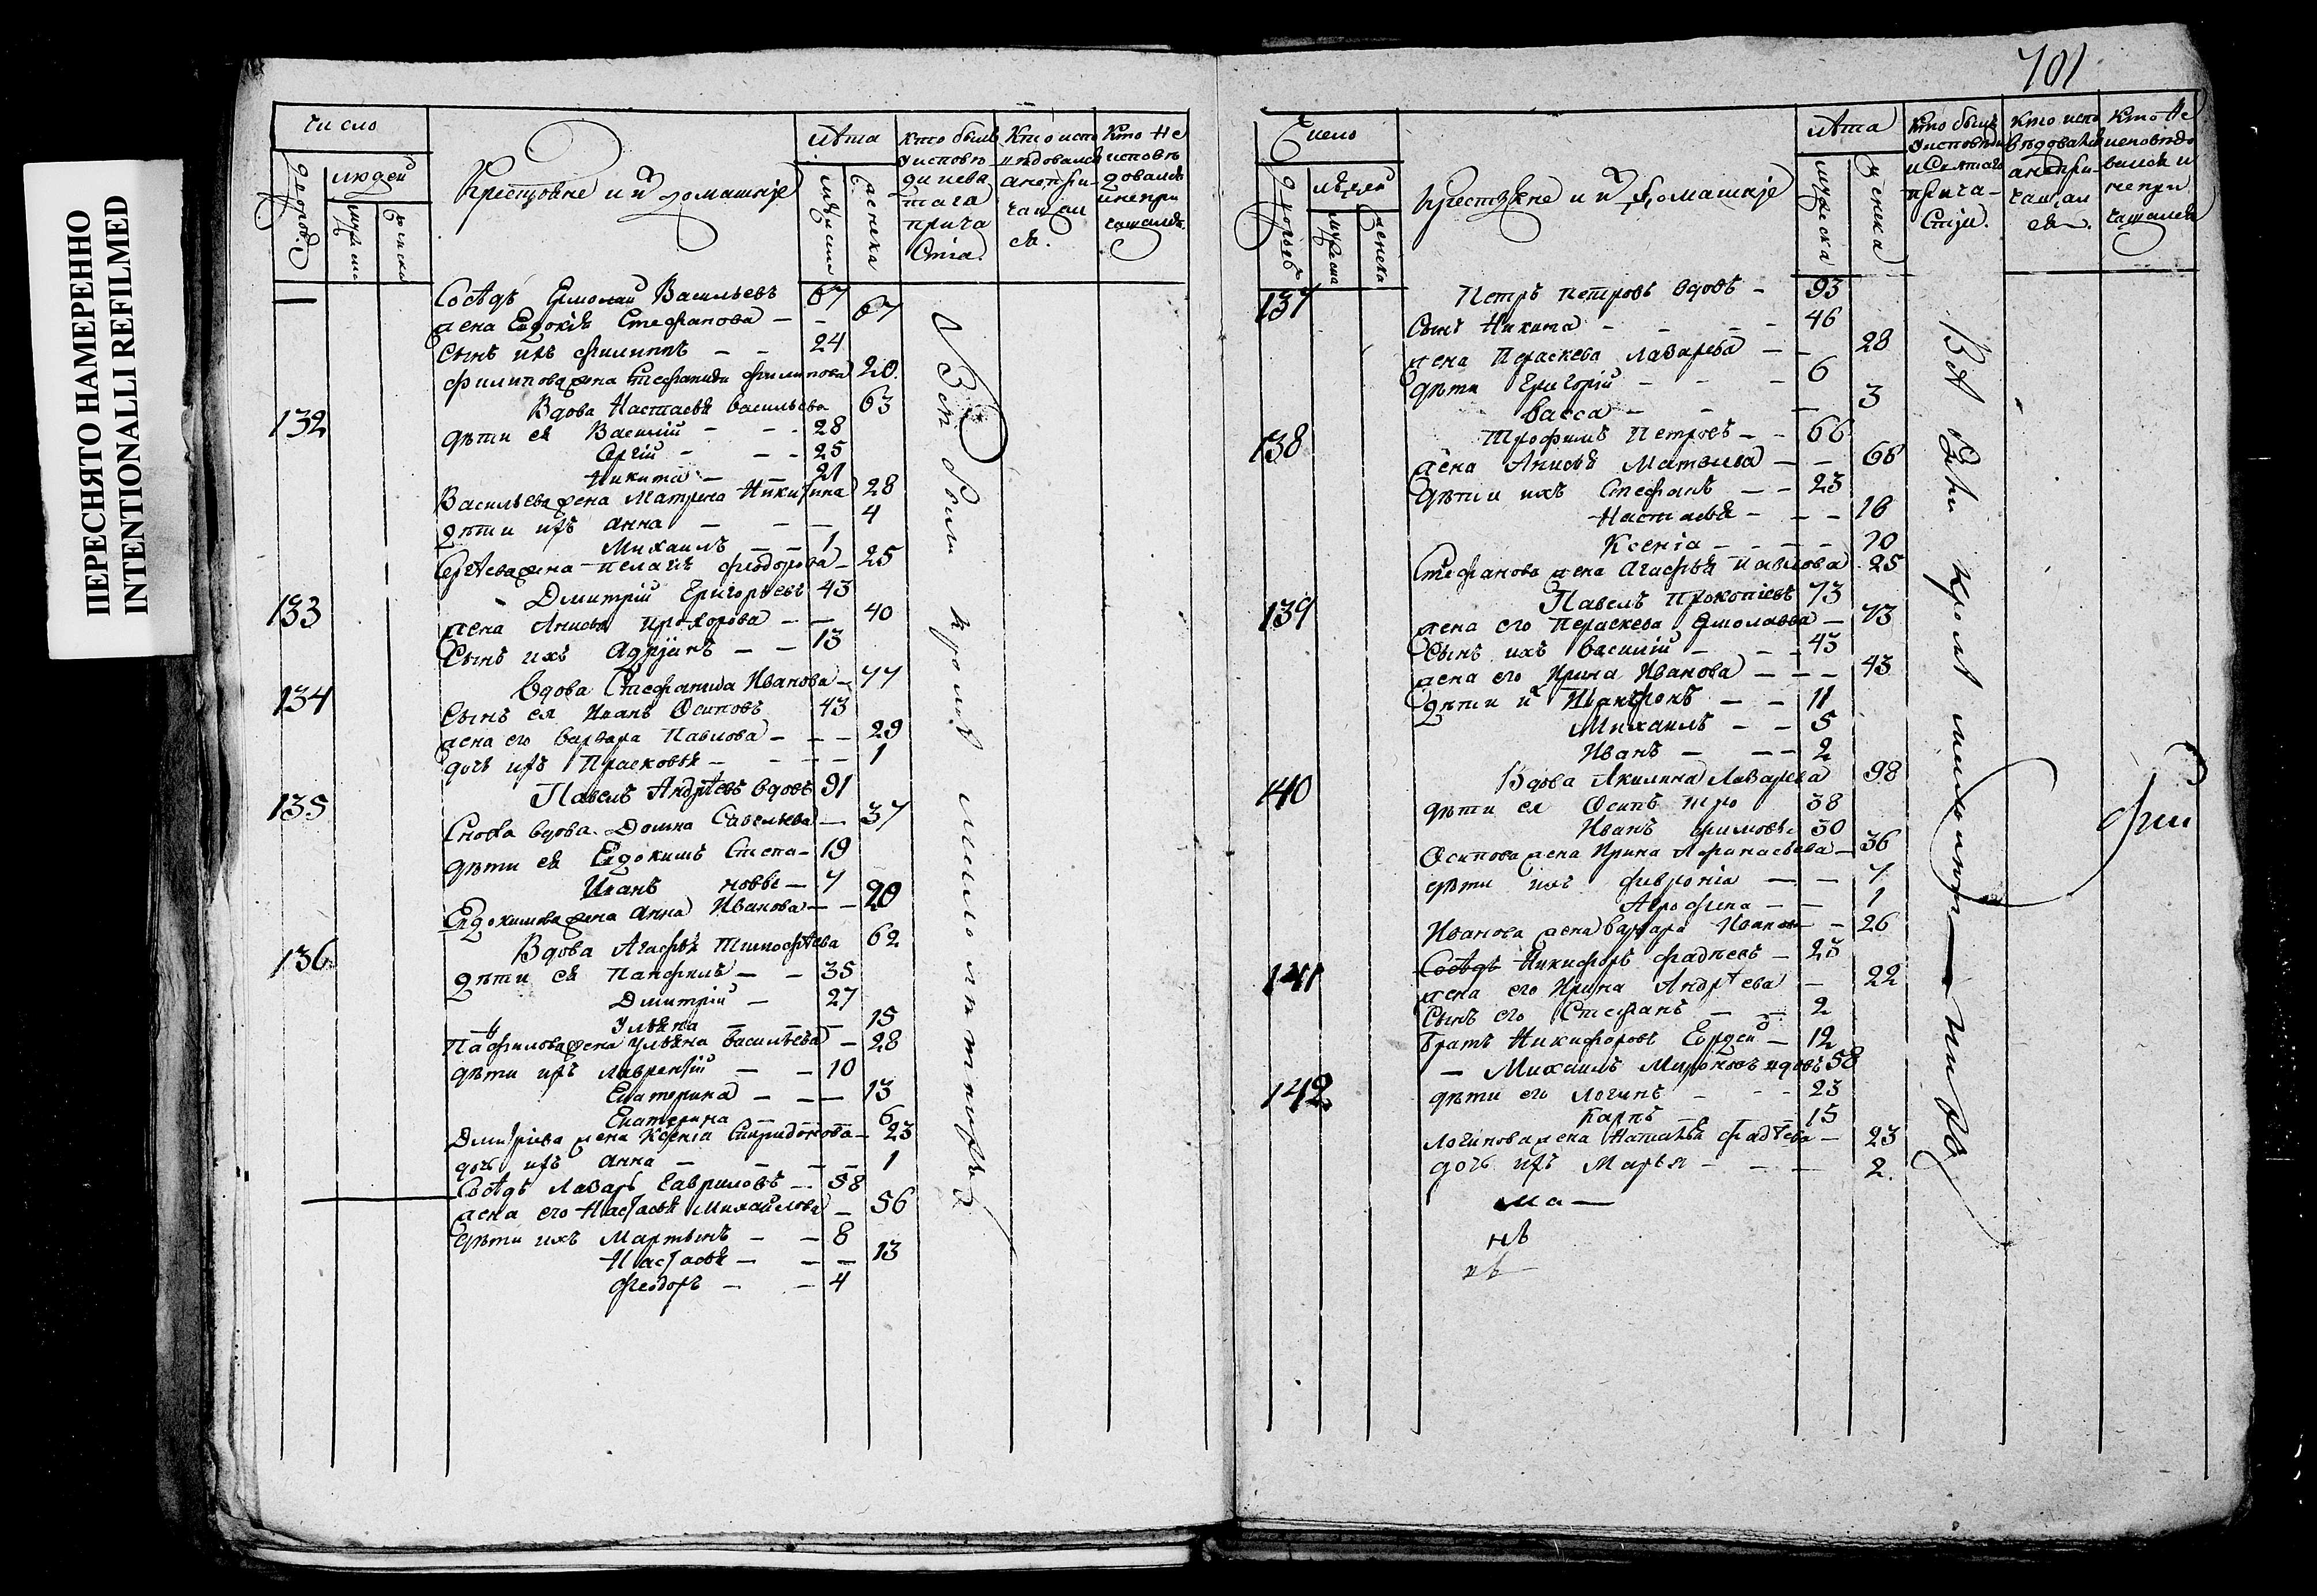 ПЕРЕСНЯТО НАМЕРЕННО
INTENTIONALLI REFILMED
Число
людей
Крестьяне и их домашніе
лѣта
Кто былъ
у исповѣ
ди и свя
таго
прича
стія.
Кто испо
вѣдовался
а не при
чащал
ся.
Кто не
исповѣ
довался
и не при
чащался.
Сосѣдъ Ермолай Васильевъ 67
жена Евдокія Стефанова — 67
сынъ ихъ Филиппъ — 24
Филипова жена Стефанида Филипова 20
132 Вдова Настасья Васильева 63
дѣти ея Василій — 28
Сергій — 25
Никита — 21
Васильева жена Матрена Никитина 28
дѣти ихъ Анна — 4
Михаилъ — 1
Сергѣева жена Пелагія Феодорова — 25
133 Дмитрій Григорьевъ 43
жена Анисья Прохорова — 40
Сынъ ихъ Адріянъ — 13
134 Вдова Стефанида Иванова — 77
Сынъ ея Иванъ Осиповъ 43
жена его Варвара Павлова — 29
дочь ихъ Прасковья — 1
135 Павелъ Андрѣевъ вдовъ 91
Сноха вдова Домна Савельева — 37
дѣти ея Евдокимъ Степа- 19
Иванъ новы — 7
Евдокимова жена Анна Иванова — 20
136 Вдова Агафья Тимофѣева 62
дѣти ея Панфилъ — 35
Дмитрій — 27
Ульяна — 15
Панфилова жена Ульяна Васильева — 28
дѣти ихъ Лаврентій — 10
Екатерина — 13
Екатерина — 6
Дмитріева жена Ксенія Спиридонова — 23
дочь ихъ Анна — 1
Сосѣдъ Лазарь Гавриловъ — 58
жена его Настасья Михайлова — 56
дѣти ихъ Мартынъ — 8
Настасья — 13
Феодоръ — 4
Всѣ были кромѣ малолѣтныхъ
101
Число
людей
Крестьяне и их домашніе
лѣта
Кто былъ
у исповѣди
и святаго
прича-
стія.
Кто испо
вѣдовался
а не при-
чащал
ся.
Кто не
исповѣдо
вался и
не при
чащался
137 Петръ Петровъ вдовъ — 93
Сынъ Никита — 46
жена Параскева Лазарева — 28
дѣти Григорій — 6
Васса — 3
138 Трофимъ Петровъ — 66
жена Анисья Матвѣева — 66
дѣти ихъ Стефанъ — 23
Настасья — 16
Ксенія — 10
Стефанова жена Агафья Павлова 25
139 Павелъ Прокопіевъ 73
жена его Параскева Ермолаева — 73
Сынъ ихъ Василій — 43
жена его Ирина Иванова — 43
дѣти их Ксанфонъ — 11
Михаилъ — 5
Иванъ — 2
140 Вдова Акилина Лазарева 98
дѣти ея Осипъ Тро 38
Иванъ фимовы 30
Осипова жена Ирина Афанасьева — 36
дѣти ихъ Февронія — 7
Агрофена — 1
Иванова жена Варвара Иванова — 26
141 Сосѣдъ Никифоръ Фадпеевъ — 23
жена его Ирина Андрѣева — 22
Сынъ его Стефанъ — 2
братъ Никифоровъ Гордей — 12
142 — Михаилъ Мироновъ вдовъ 58
дѣти его Логинъ — 23
Карпъ — 15
Логинова жена Наталья Фадѣева — 23
дочь ихъ Марья — 2.
ма —
нѣ
Всѣ были кромѣ малолѣтныхъ